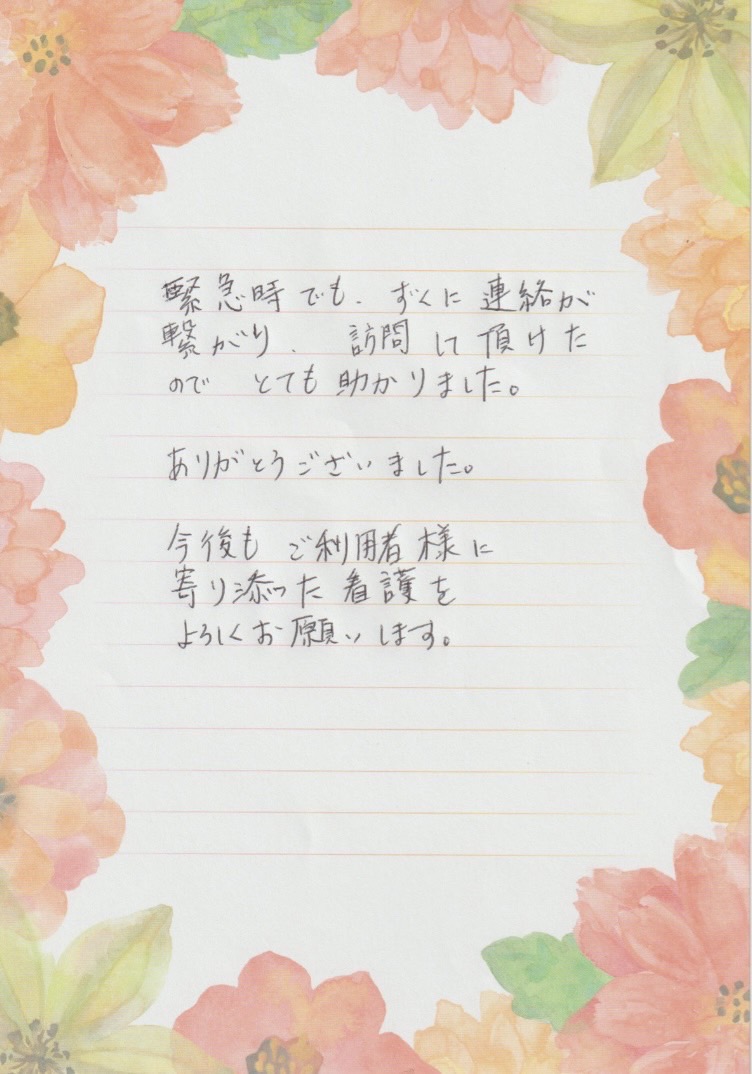 緊急時でも、すぐに連絡が
繋がり、訪問して頂けた
のでとても助かりました。
ありがとうございました。
今後もご利用者様に
寄り添った看護を
よろしくお願いします。